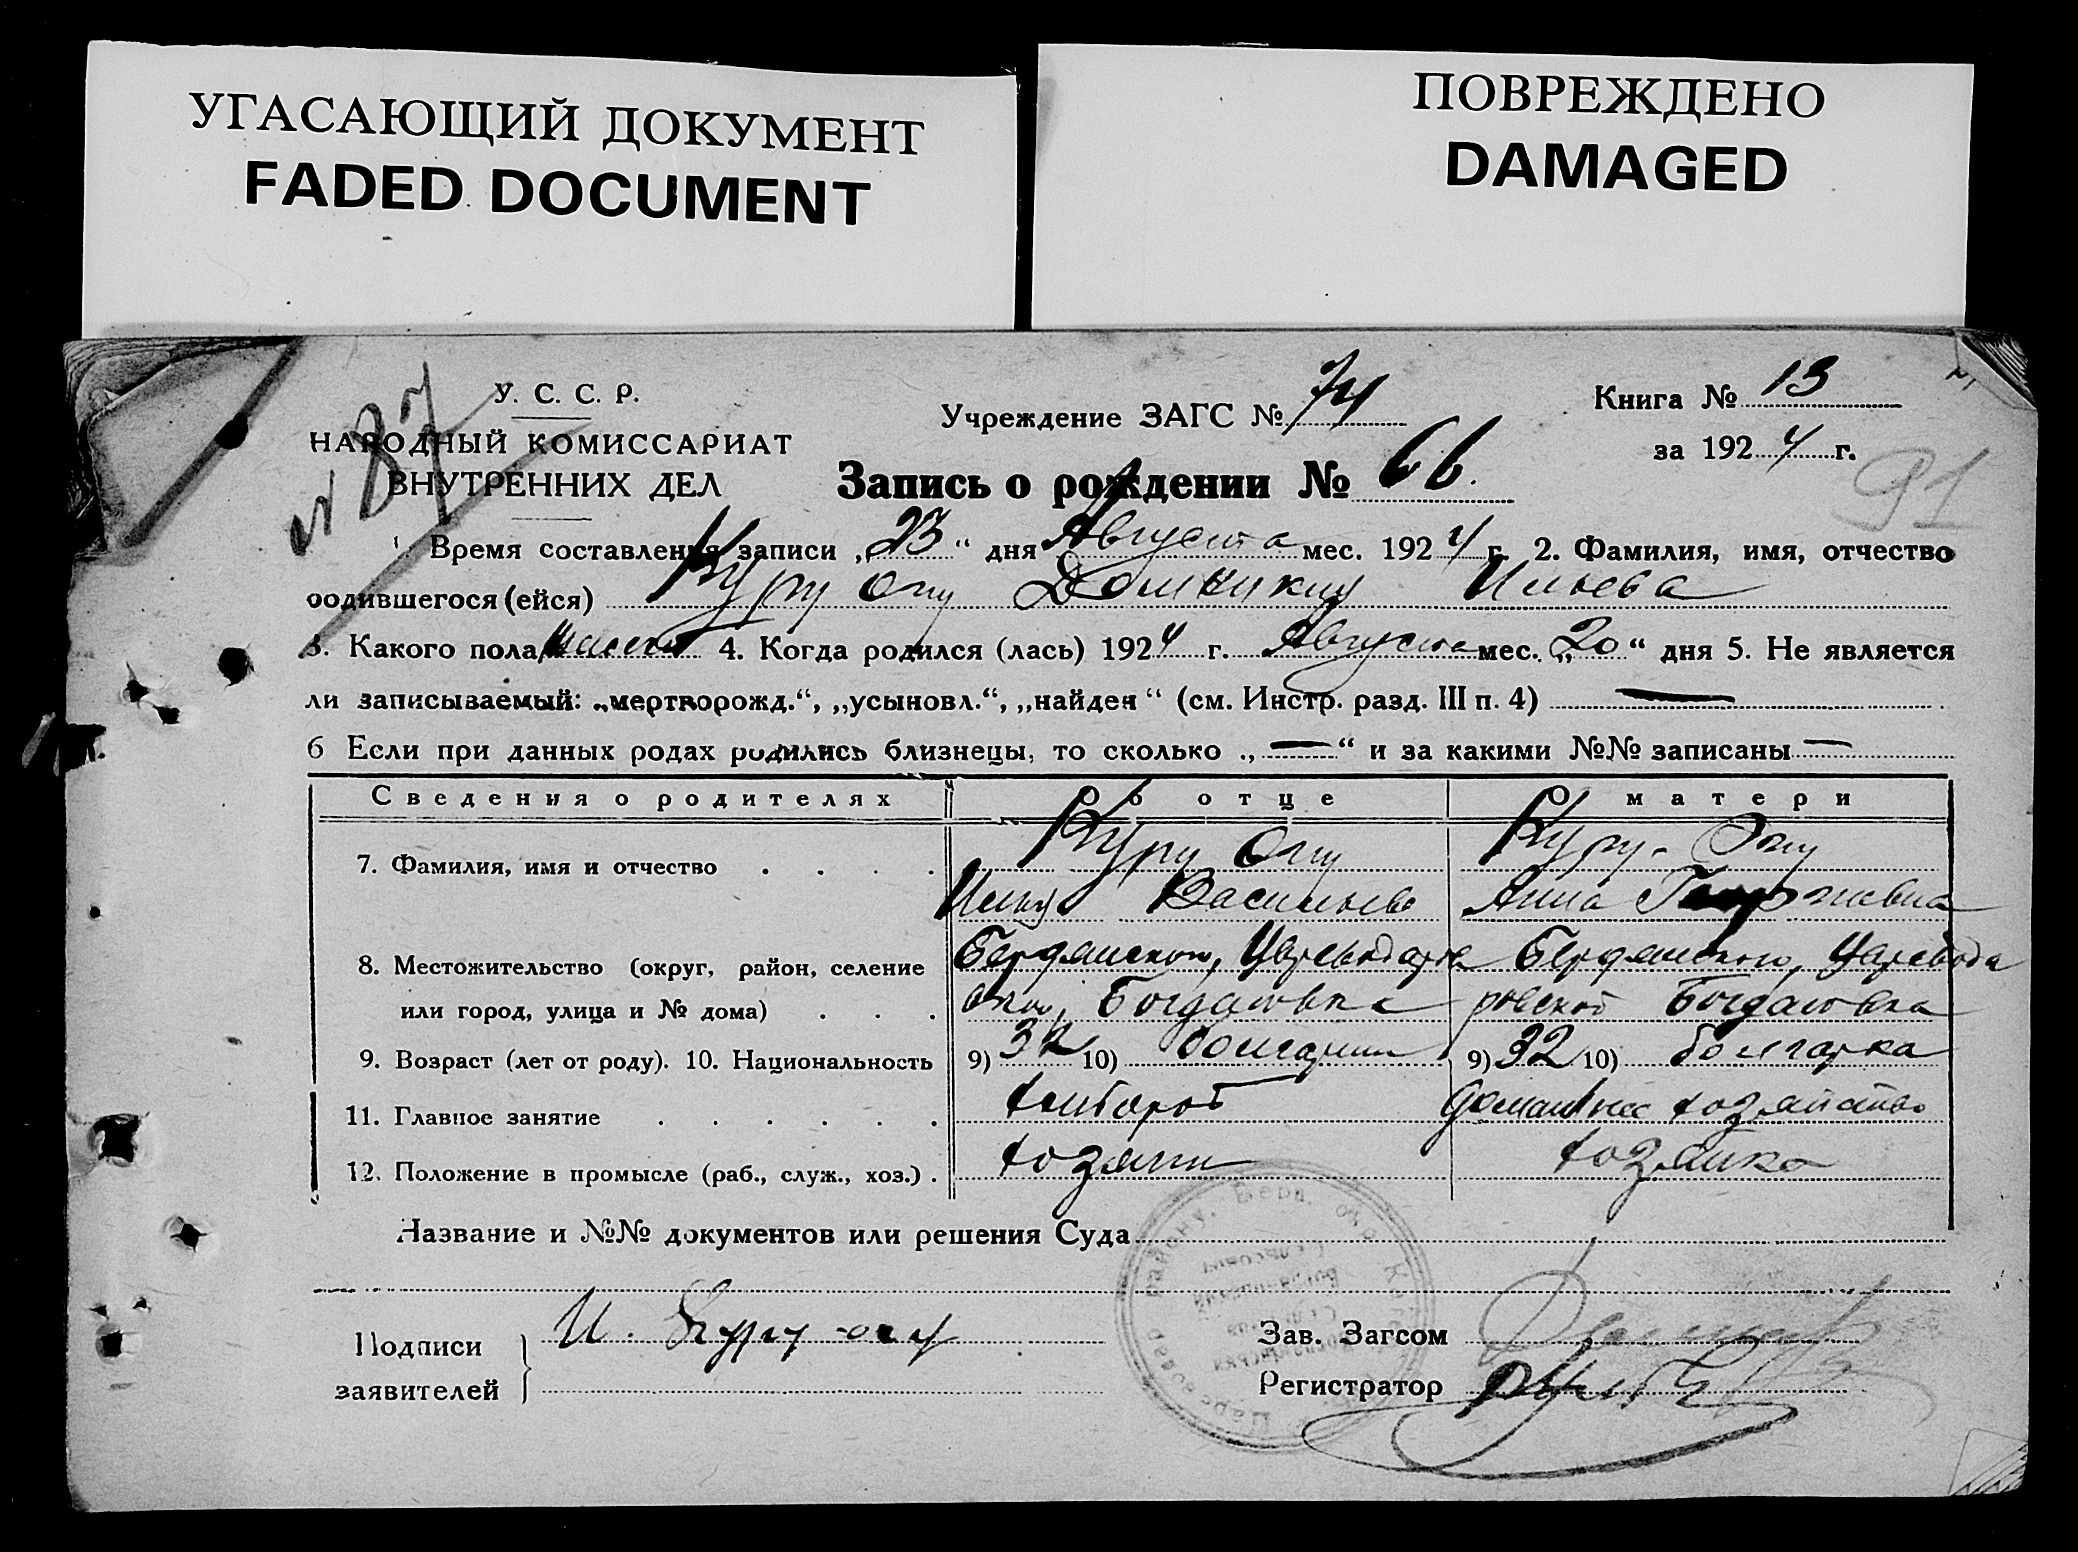 УГАСАЮЩИЙ ДОКУМЕНТ
FADED DOCUMENT
ПОВРЕЖДЕНО
DAMAGED
У. С. С. Р.
НАРОДНЫЙ КОМИССАРИАТ
ВНУТРЕННИХ ДЕЛ
№ 87
Учреждение ЗАГС № 74
Книга № 13
за 1924 г.
91
Запись о рождении № 66
1. Время составления записи „23“ дня Августа мес. 1924 г. 2. Фамилия, имя, отчество
родившегося (ейся) Куру Оглу Доминикия Ильева
3. Какого пола 4. Когда родился (лась) 1924 г. Августа мес. „20“ дня 5. Не является
ли записываемый: „мертворожд.“, „усыновл.“, „найден“ (см. Инстр. разд. III п. 4) —
6 Если при данных родах родились близнецы, то сколько „—“ и за какими №№ записаны —
Сведения о родителях Об отце О матери
7. Фамилия, имя и отчество Куру Оглу Куру-Оглу
Илья Васильев Анна Георгиевна
8. Местожительство (округ, район, селение Бердянского, Царевода
или город, улица и № дома) Богдановка ровской Богдановка
9. Возраст (лет от роду). 10. Национальность 9) 32 10) болгарин 9) 32 10) болгарка
11. Главное занятие хлебороб домашнее хозяйство
12. Положение в промысле (раб., служ., хоз.) хозяин хозяйка
Название и №№ документов или решения Суда
Подписи
заявителей
И. Куру-оглу
Зав. Загсом
Регистратор